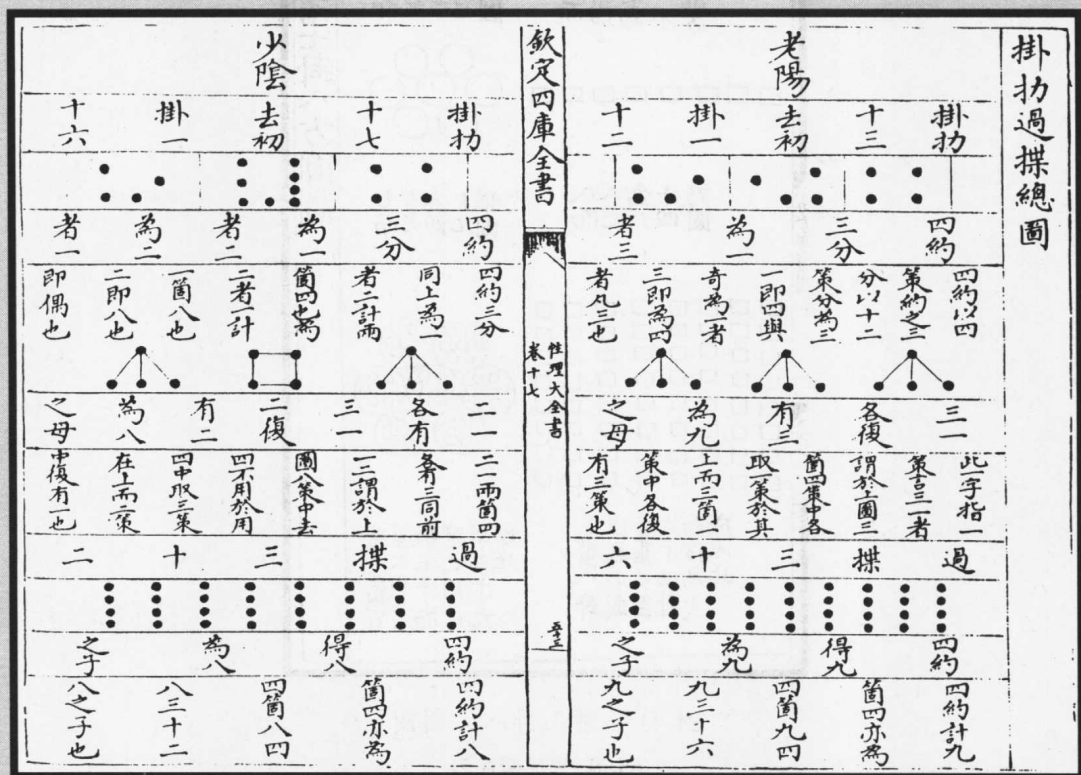 掛扐過揲總圖
老陽
掛扐
十三
去初
掛一
十二
四約
三分
為一
者三
四約以四
策約之三
分以十二
策分為三
一即四與
奇為者
三即為四
者凡三也
三一
各復
有三
為九
之母
此字指一
策言三一者
謂於上圖三
箇四策中各
取一策於其
上而三箇一
策中各復
有三策也
過
揲
三
十
六
四約
得九
為九
之子
四約計九
箇四亦為
四箇九四
九三十六
九之子也
欽定四庫全書
性理大全書
卷十七
少陰
掛扐
十七
去初
掛一
十六
四約
三分
為一
者二
為二
者一
四約三分
同上為一
者二計兩
箇四也為
二者一計
一箇八也
二即八也
即偶也
二一
各有
三一
二復
有二
為八
之母
二一兩箇四
各有三同前
一二謂於上
圖八策中去
四不用於用
四中取二策
在上而二策
中復有二也
過
揲
三
十
二
四約
得八
為八
之子
四約計八
箇四亦為
四箇八四
八三十二
八之子也